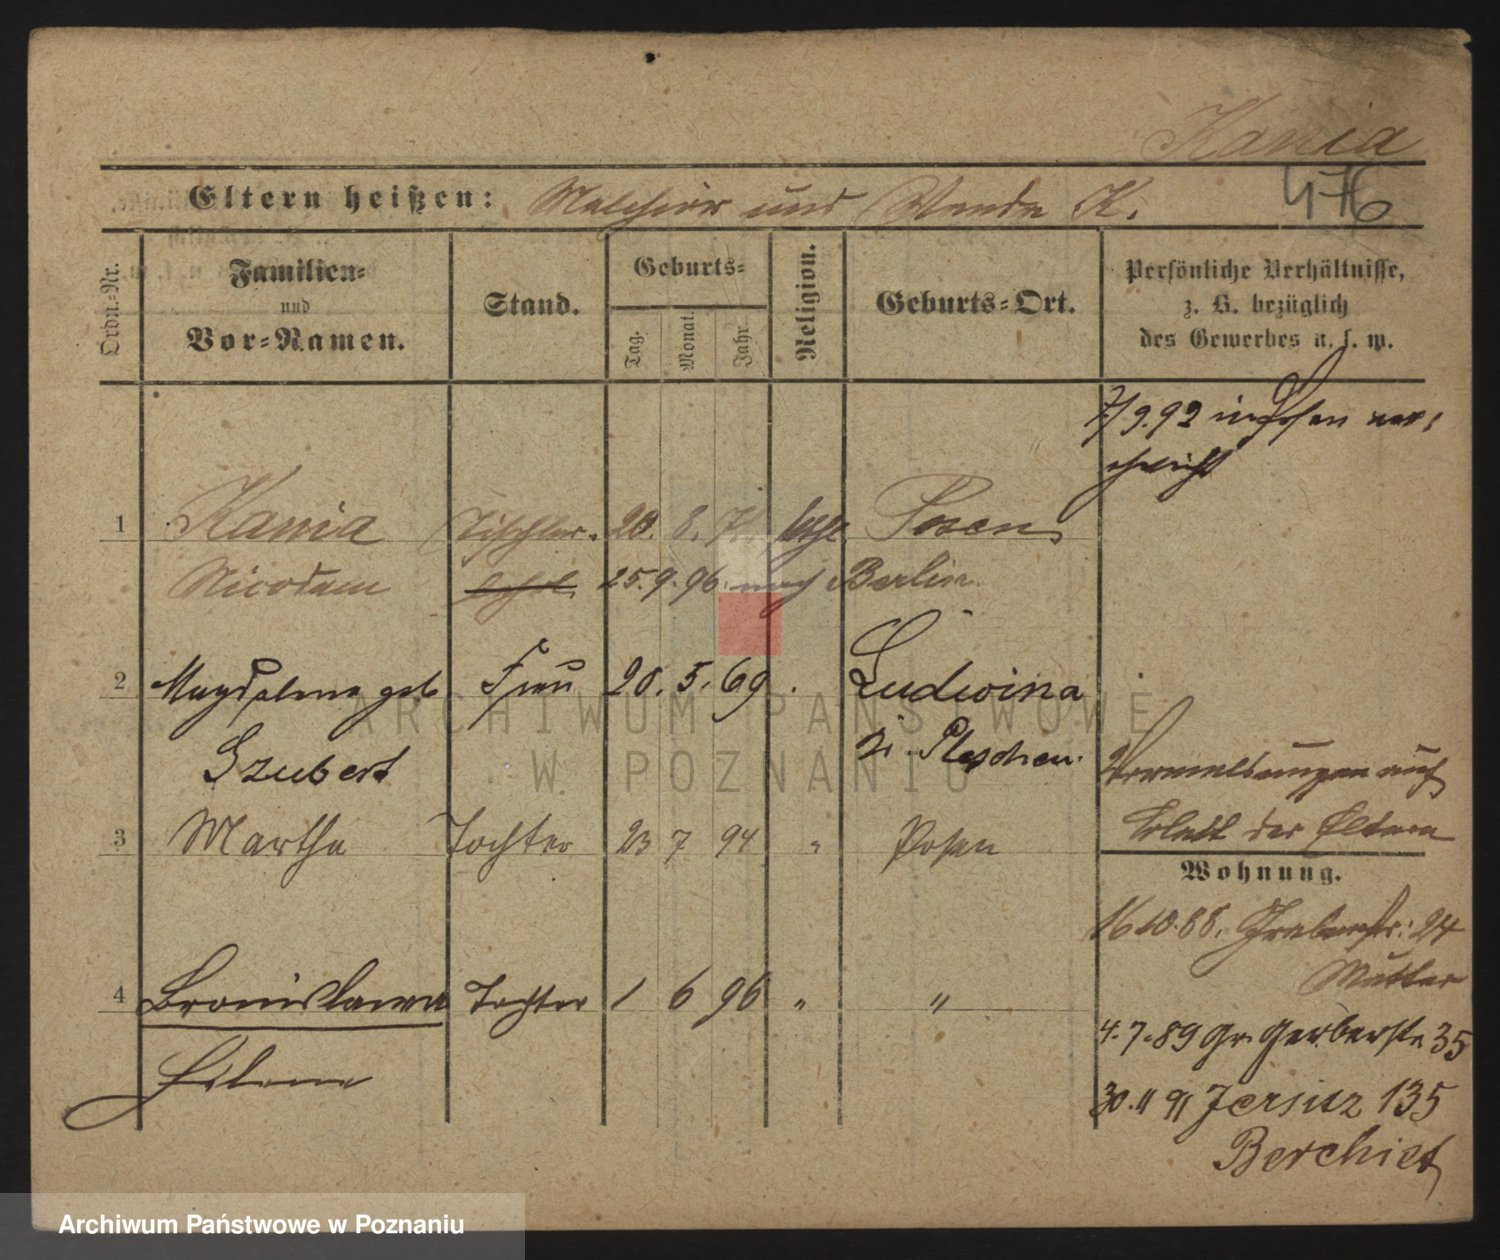 Kania
476
Eltern heißen: Melchior und Wanda K.
Ordn.-Nr.
Familien-
und
Vor-Namen.
Stand.
Geburts-
Tag.
Monat.
Jahr.
Religion.
Geburts-Ort.
Persönliche Verhältnisse,
z. B. bezüglich
des Gewerbes u. s. w.
7/9.92 in Posen ver:
ehelicht
1 Kania Tischler. 20. 8. 71. kath Posen
Nicodem 25.9.96. nach Berlin
2 Magdalena geb Frau 20. 5. 69. Ludwina
Szubert Kr. Pleschen.
Vermeldungen auf
Blatt der Eltern
3 Martha Tochter 23 7 94 " Posen
Wohnung.
16.10.88. Grabenstr: 24
Mutter
4 Bronislawa Tochter 1 6 96 " "
Helene
4.7.89 Gr. Gerberstr 35
30.11 91 Jersitz 135
Berchiet
ARCHIWUM PAŃSTWOWE
W POZNANIU
Archiwum Państwowe w Poznaniu